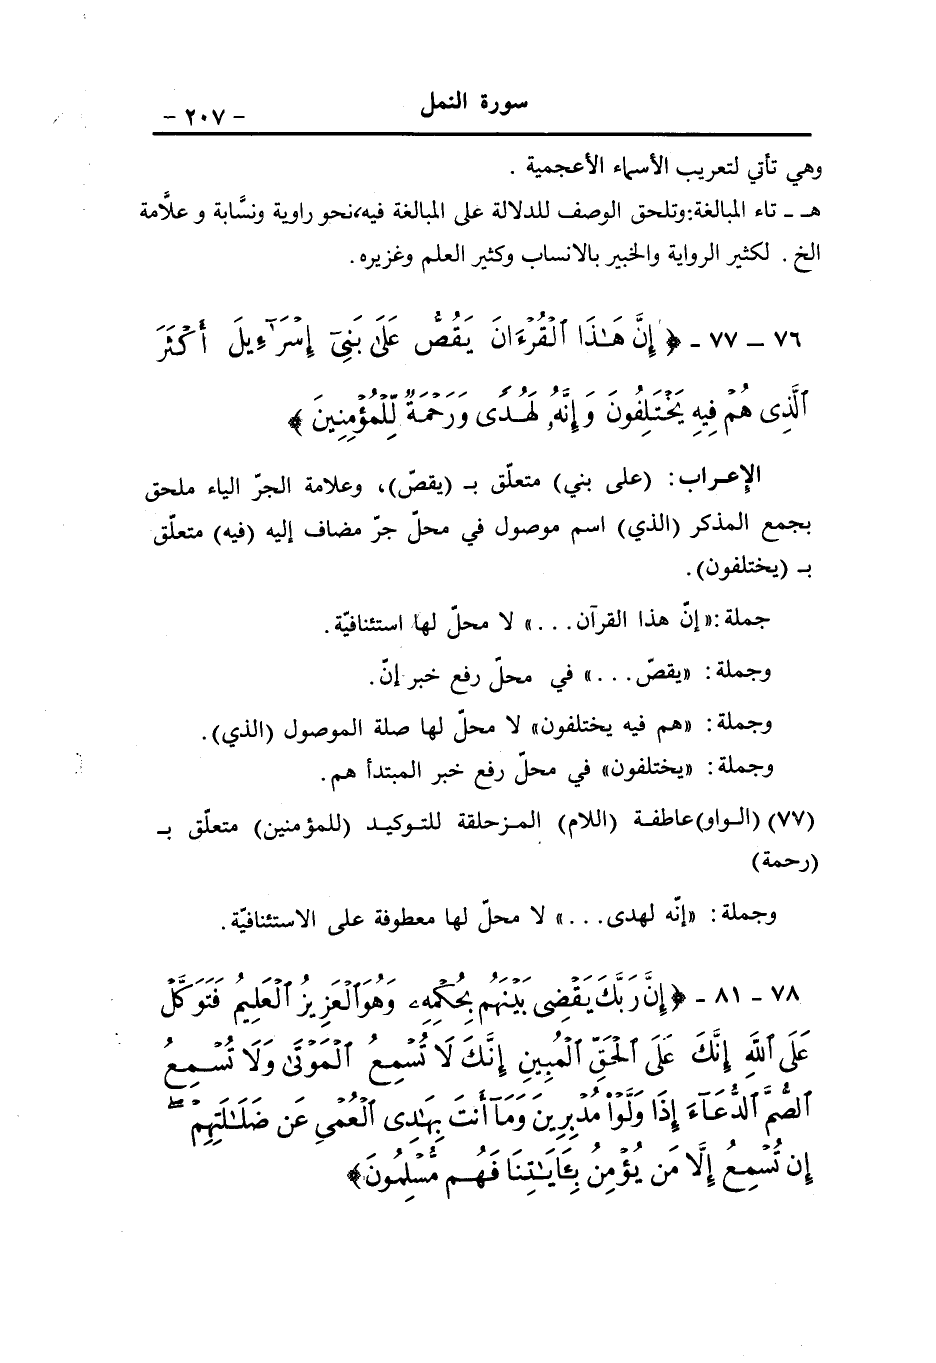 سورة النمل
- ٢٠٧ -
وهي تأتي لتعريب الأسماء الأعجمية .
هـ ـ تاء المبالغة:وتلحق الوصف للدلالة على المبالغة فيه،نحو راوية ونسَّابة و علاَّمة
الخ . لكثير الرواية والخبير بالانساب وكثير العلم وغزيره.
٧٦ - ٧٧ - ﴿ إِنَّ هَـٰذَا ٱلْقُرْءَانَ يَقُصُّ عَلَىٰ بَنِىٓ إِسْرَٰٓءِيلَ أَكْثَرَ
ٱلَّذِى هُمْ فِيهِ يَخْتَلِفُونَ وَإِنَّهُۥ لَهُـدًى وَرَحْمَةٌ لِّلْمُؤْمِنِينَ ﴾
الإعـراب: (على بني) متعلّق بـ (يقصّ)، وعلامة الجرّ الياء ملحق
بجمع المذكر (الذي) اسم موصول في محلّ جرّ مضاف إليه (فيه) متعلّق
بـ (يختلفون).
جملة:«إنّ هذا القرآن...» لا محلّ لها استئنافيّة.
وجملة: «يقصّ...» في محلّ رفع خبر إنّ.
وجملة: «هم فيه يختلفون» لا محلّ لها صلة الموصول (الذي).
وجملة: «يختلفون» في محلّ رفع خبر المبتدأ هم.
(٧٧) (الـواو)عاطفـة (اللام) المـزحلقة للتـوكيـد (للمؤمنين) متعلّق بـ
(رحمة)
وجملة: «إنّه لهدى...» لا محلّ لها معطوفة على الاستئنافيّة.
٧٨ - ٨١ - ﴿ إِنَّ رَبَّكَ يَقْضِى بَيْنَهُم بِحُكْمِهِۦ وَهُوَ ٱلْعَزِيزُ ٱلْعَلِيمُ فَتَوَكَّلْ
عَلَى ٱللَّهِ إِنَّكَ عَلَى ٱلْحَقِّ ٱلْمُبِينِ إِنَّكَ لَا تُسْمِعُ ٱلْمَوْتَىٰ وَلَا تُسْـمِعُ
ٱلصُّمَّ ٱلدُّعَآءَ إِذَا وَلَّوْا۟ مُدْبِرِينَ وَمَآ أَنتَ بِهَـٰدِى ٱلْعُمْىِ عَن ضَلَـٰلَتِهِمْ ۖ
إِن تُسْمِعُ إِلَّا مَن يُؤْمِنُ بِـَٔايَـٰتِنَا فَهُـم مُّسْلِمُونَ ﴾